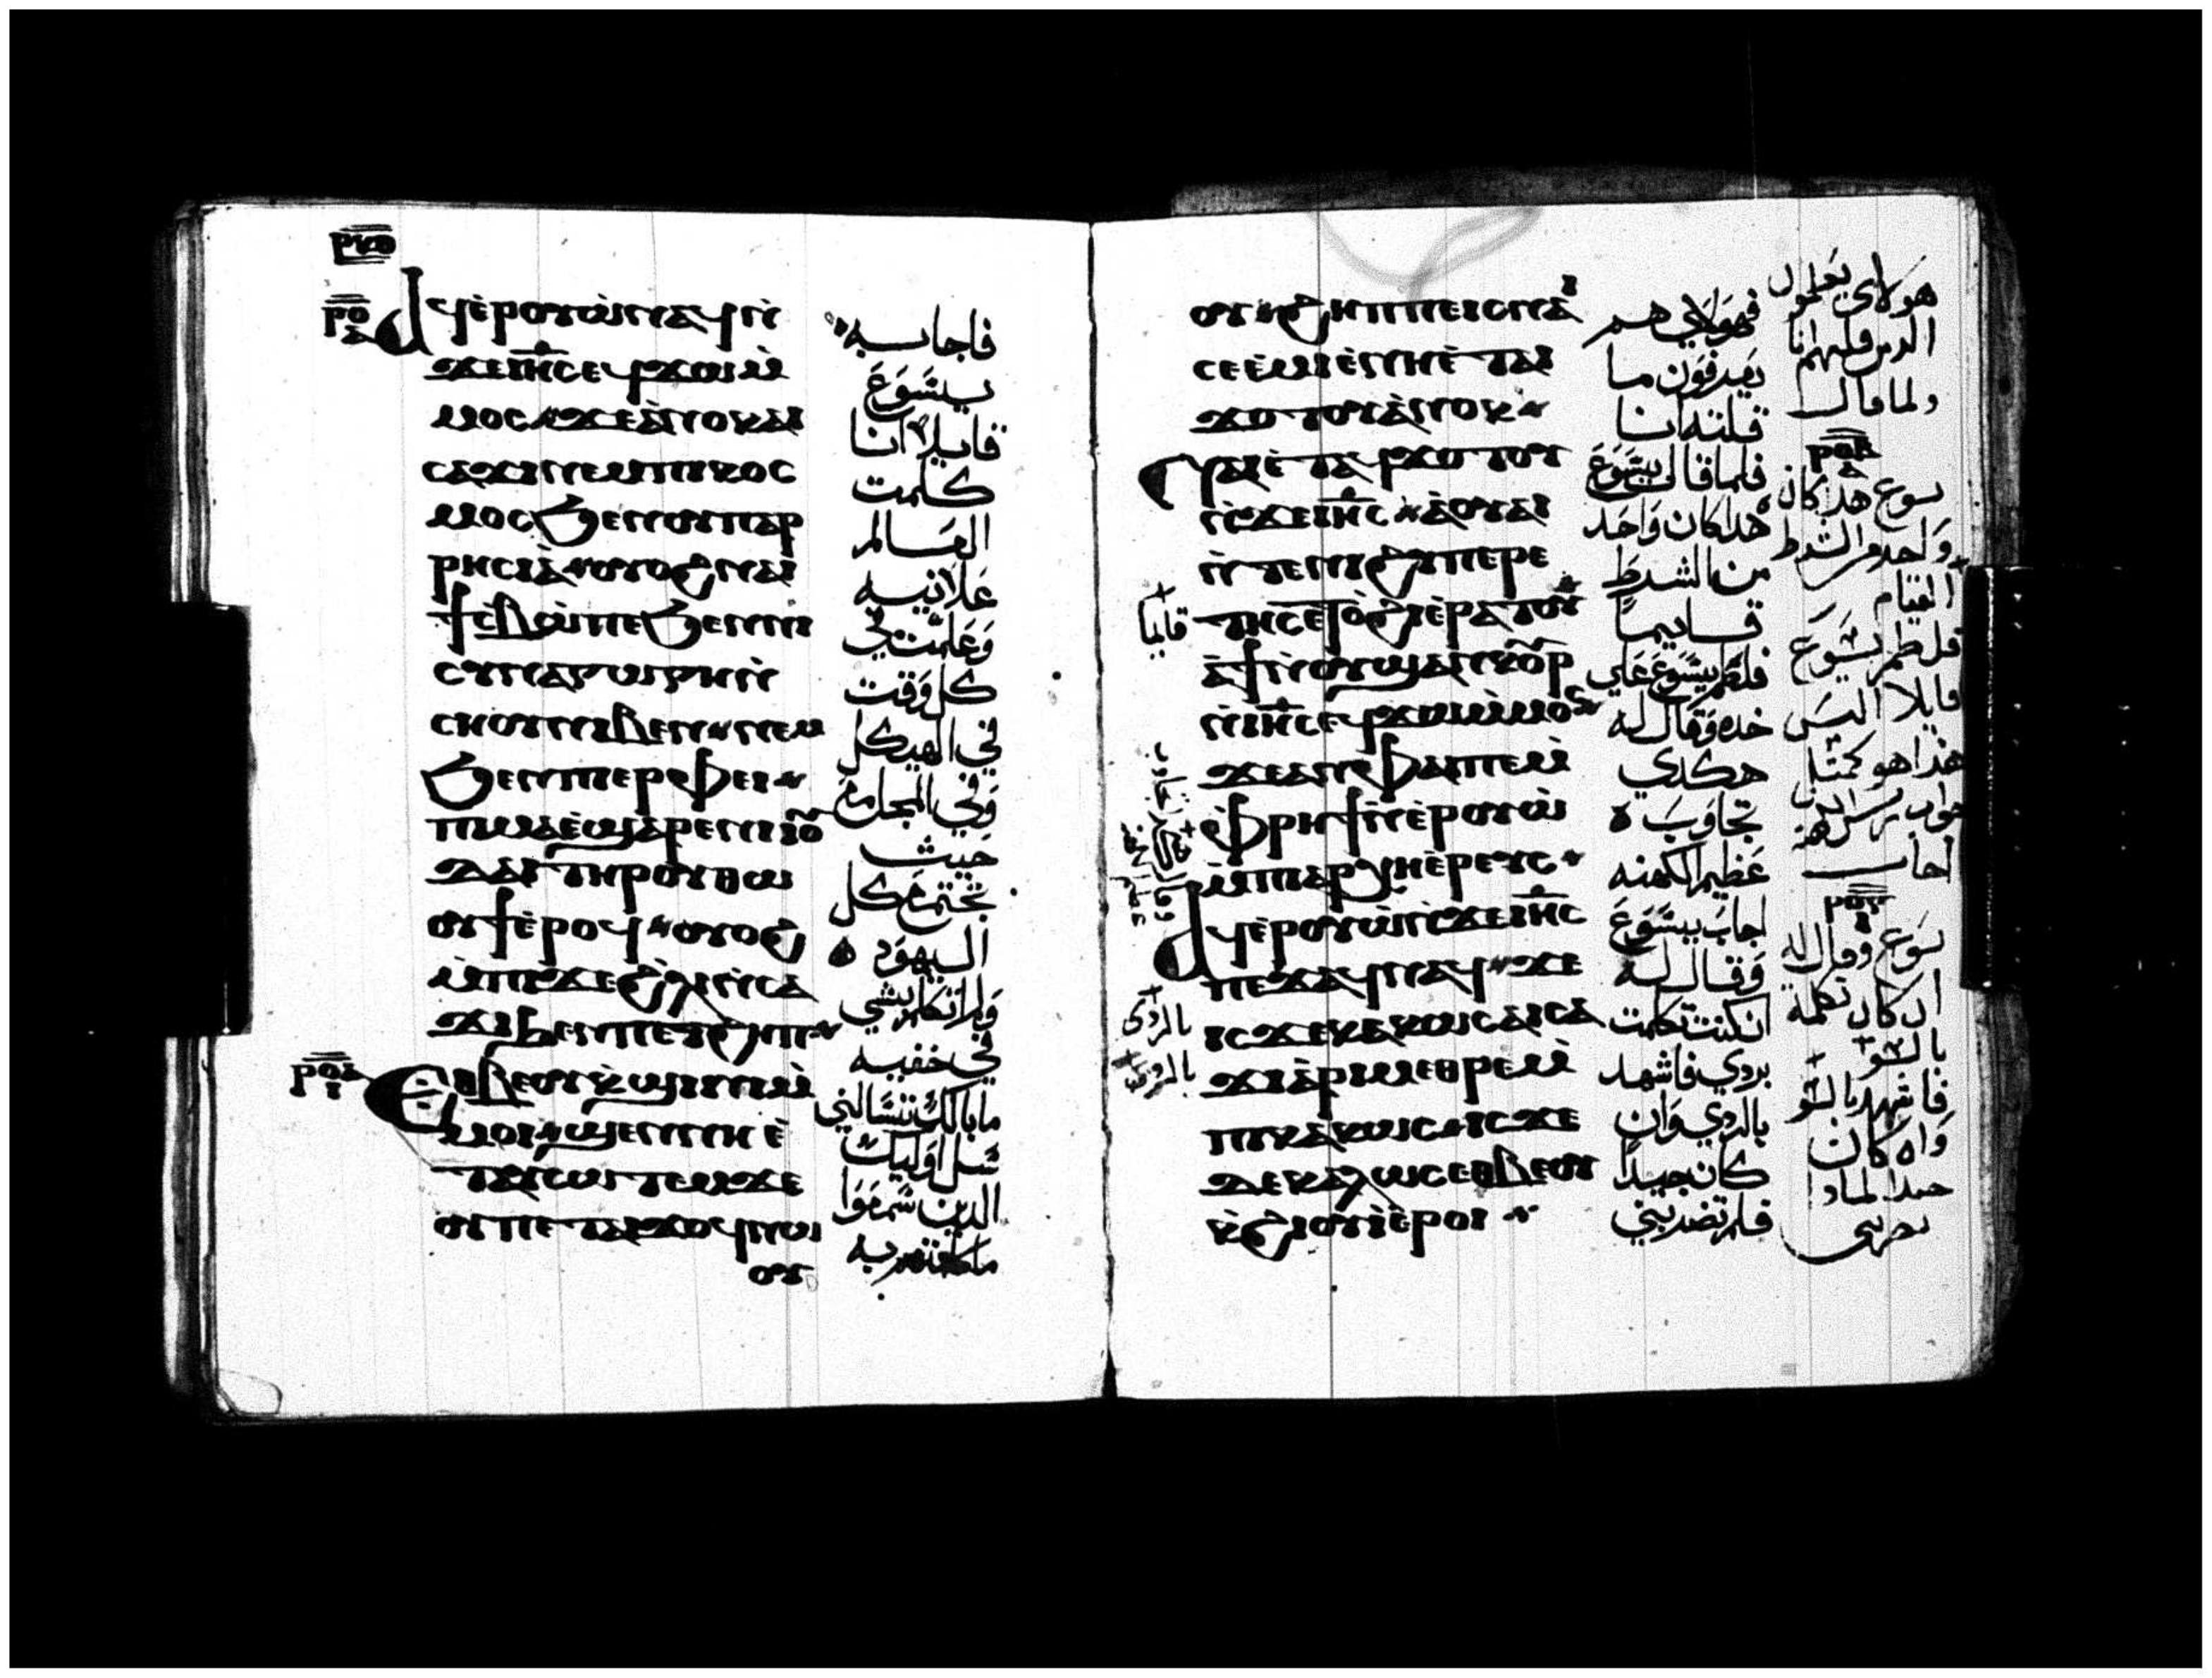 ⲣⲕⲑ
ⲣⲟ
ⲁϥⲉ̀ⲣⲟⲩⲱ̀ⲛⲁϥⲛ̀
ϫⲉⲓⲏ̅ⲥ̅ⲉϥϫⲱⲙ̀
ⲙⲟⲥ ϫⲉⲁ̀ⲛⲟⲕⲁⲓ
ⲥⲁϫⲓⲛⲉⲙⲡⲓⲕⲟⲥ
ⲙⲟⲥϧⲉⲛⲟⲩⲡⲁⲣ
ⲣⲏⲥⲓⲁ̀ ⲟⲩⲟϩⲛⲁⲓ
ϯⲥⲃⲱ̀ⲡⲉϧⲉⲛⲛⲓ
ⲥⲩⲛⲁⲅⲱⲅⲏⲛ̀
ⲥⲏⲟⲩⲛⲓⲃⲉⲛ ⲛⲉⲙ
ϧⲉⲛⲡⲉⲣⲫⲉⲓ
ⲡⲓⲙⲁⲉ̀ϣⲁⲣⲉⲛⲓⲓⲟ̅
ⲇⲁⲓⲧⲏⲣⲟⲩⲑⲱ
ⲟⲩϯⲉ̀ⲣⲟϥ ⲟⲩⲟϩ
ⲙ̀ⲡⲓϫⲉϩ̀ⲗⲓⲛ̀ⲥⲁ
ϫⲓϧⲉⲛⲡⲉⲧϩⲏⲡ
ⲣⲟⲁ
ⲉⲑⲃⲉⲟⲩⲕ̀ϣⲓⲛⲓⲙ̀
ⲙⲟⲓ ϣⲉⲛⲛⲏⲉ̀
ⲧⲁⲩⲥⲱⲧⲉⲙϫⲉ
ⲟⲩⲡⲉⲧⲁⲓϫⲟϥⲛⲱ
ⲟⲩ
فاجابه
يسوع
قايلا انا
كلمت
العالم
علانيه
وعلمت في
كل وقت
في الهيكل
وفي المجامع
حيث
تجتمع كل
اليهود
ولم اتكلم بشي
في خفيه
ما بالك تسالني
سل اوليك
الذين سمعوا
ما كلمتهم به
ⲟⲩ ϩⲏⲡⲡⲉⲓⲥⲛⲁⲓ
ⲥⲉⲉ̀ⲙⲓⲉ̀ⲛⲏⲉ̀ⲧⲁⲓ
ϫⲟⲧⲟⲩⲁ̀ⲛⲟⲕ
ⲛⲁⲓⲉ̀ⲧⲁϥϫⲟⲧⲟⲩ
ⲛ̀ϫⲉⲓⲏ̅ⲥ̅ ⲁ̀ⲟⲩⲁⲓ
ⲛ̀ⲧⲉⲛⲓϩⲩⲡⲉⲣⲉ
ⲧⲏⲥⲉⲧⲟ̀ϩⲓⲉ̀ⲣⲁⲧⲟⲩ
ⲁ̀ϯⲛ̀ⲟⲩϣⲁⲛⲕⲟⲩⲣ
ⲛ̀ⲓⲏ̅ⲥ̅ⲉϥϫⲱⲙ̀ⲙⲟⲥ
ϫⲉⲁⲛⲫⲁⲓⲡⲉⲙ̀
ⲫ̀ⲣⲏϯⲛ̀ⲉ̀ⲣⲟⲩⲱ̀
ⲙ̀ⲡⲁⲣⲭⲏⲉ̀ⲣⲉⲩⲥ
ⲁϥⲉ̀ⲣⲟⲩⲱ̀ⲛ̀ϫⲉⲓⲏ̅ⲥ̅
ⲡⲉϫⲁϥⲛⲁϥ ϫⲉ
ⲓⲥϫⲉⲕⲁⲕⲱⲥⲁⲓⲥⲁ
ϫⲓⲁ̀ⲣⲓⲙⲉⲑⲣⲉⲙ̀
ⲡⲓⲕⲁⲕⲱⲥ ⲓⲥϫⲉ
ⲇⲉⲕⲁⲗⲱⲥⲉⲑⲃⲉⲟⲩ
ⲕ̀ϩⲓⲟⲩⲓ̀ⲉ̀ⲣⲟⲓ
قايما
بالردى
فهولاي هم
يعرفون ما
قلته انا
فلما قال يسوع
هذا كان واحد
من الشرط
قايما
فلطم يسوع علي
خده وقال له
هكدي
تجاوب
عظيم الكهنه
اجاب يسوع
وقال له
ان كنت تكلمت
بردي فاشهد
بالردي وان
كان جيدا
فلم تضربني
هولاى يعلمون
الدى قلته انا
ولما قال
يسوع هذا كان
واحد من الشرط
القيام
فلطم يسوع
قايلا اليس
هذا هو كمثل
جواب ريس الكهنه
اجاب
يسوع وقال له
ان كان تكلمت
بالسو
فاشهد بالسو
وان كان
جيدا لماذا
تضربنى